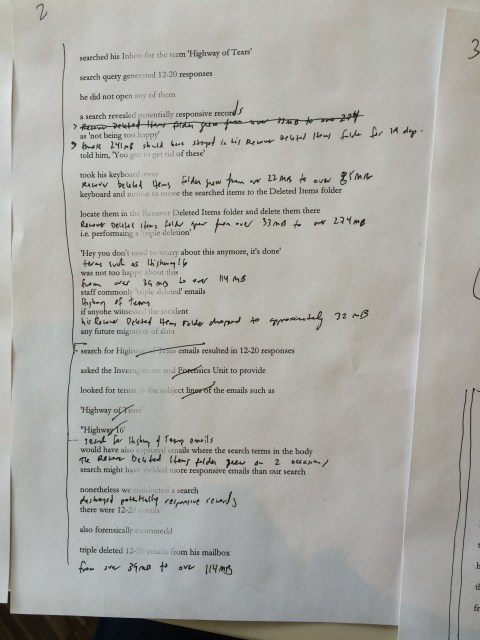 2
searched his Inbox for the term 'Highway of Tears'
search query generated 12-20 responses
he did not open any of them
a search revealed potentially responsive records
Recover Deleted Items folder grew from over 33 MB to over 274
as 'not being too happy'
those 241 MB should have stayed in his Recover Deleted Items folder for 14 days.
told him, 'You got to get rid of these'
took his keyboard away
Recover Deleted Items folder grew from over 22 MB to over 85 MB
keyboard and mouse to move the searched items to the Deleted Items folder
locate them in the Recover Deleted Items folder and delete them there
Recover Deleted Items folder grew from over 33 MB to over 274 MB
i.e. performing a 'triple deletion'
'Hey you don't need to worry about this anymore, it's done'
terms such as Highway 16
was not too happy about this
from over 39 MB to over 114 MB
staff commonly 'triple deleted' emails
Highway of Tears
if anyone witnessed the incident
his Recover Deleted Items Folder dropped to approximately 32 MB
any future migration of data
search for Highway of Tears emails resulted in 12-20 responses
asked the Investigations and Forensics Unit to provide
looked for terms in the subject lines of the emails such as
'Highway of Tears'
"Highway 16'
search for Highway of Tears emails
would have also captured emails where the search terms in the body
The Recover Deleted Items folder grew on 2 occasions
search might have yielded more responsive emails than our search
nonetheless we conducted a search
destroyed potentially responsive records
there were 12-20 emails
also forensically examined
triple deleted 12-20 emails from his mailbox
from over 39 MB to over 114 MB
3